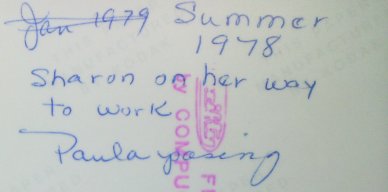 Jan 1979 Summer
1978
Sharon on her way
to work
Paula posing